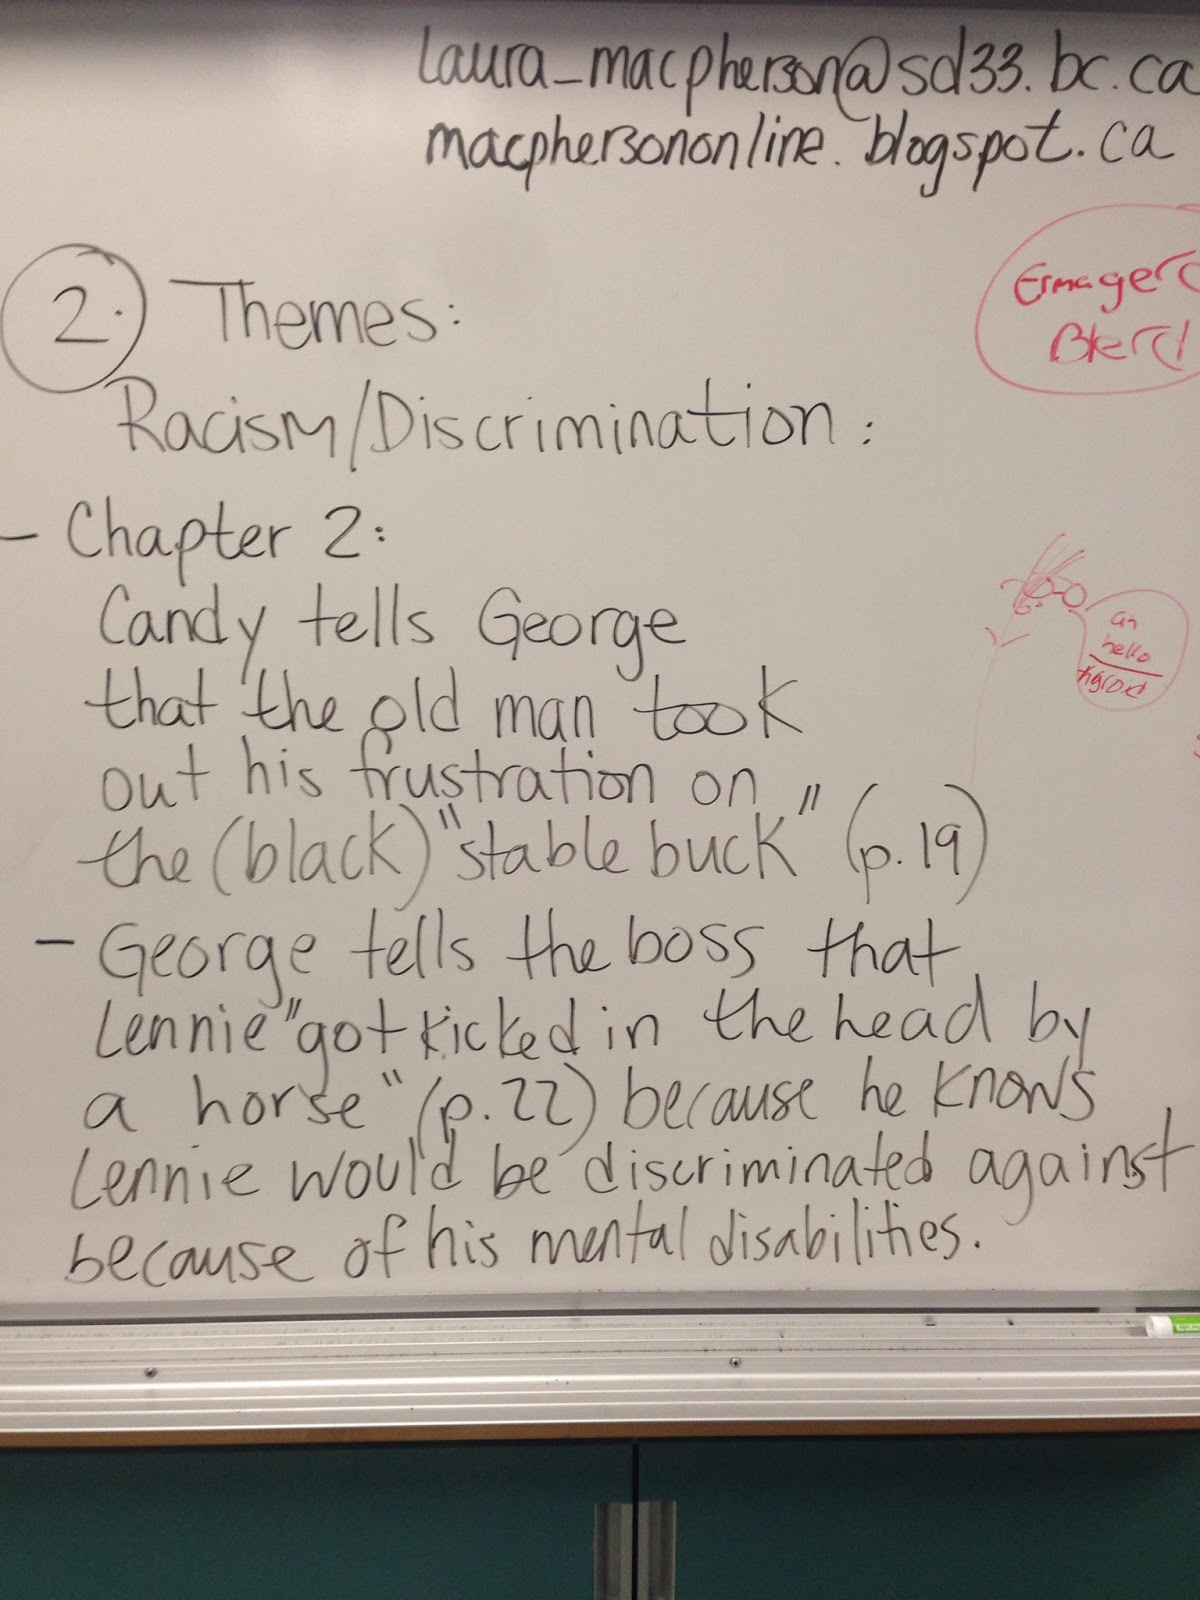 laura_macpherson@sd33.bc.ca
macphersononline.blogspot.ca
Ermagerd
Blerd
2. Themes:
Racism/Discrimination:
- Chapter 2:
Candy tells George
that the old man took
out his frustration on
the (black) "stable buck" (p.19)
an
hello
- George tells the boss that
Lennie "got kicked in the head by
a horse" (p.22) because he knows
Lennie would be discriminated against
because of his mental disabilities.